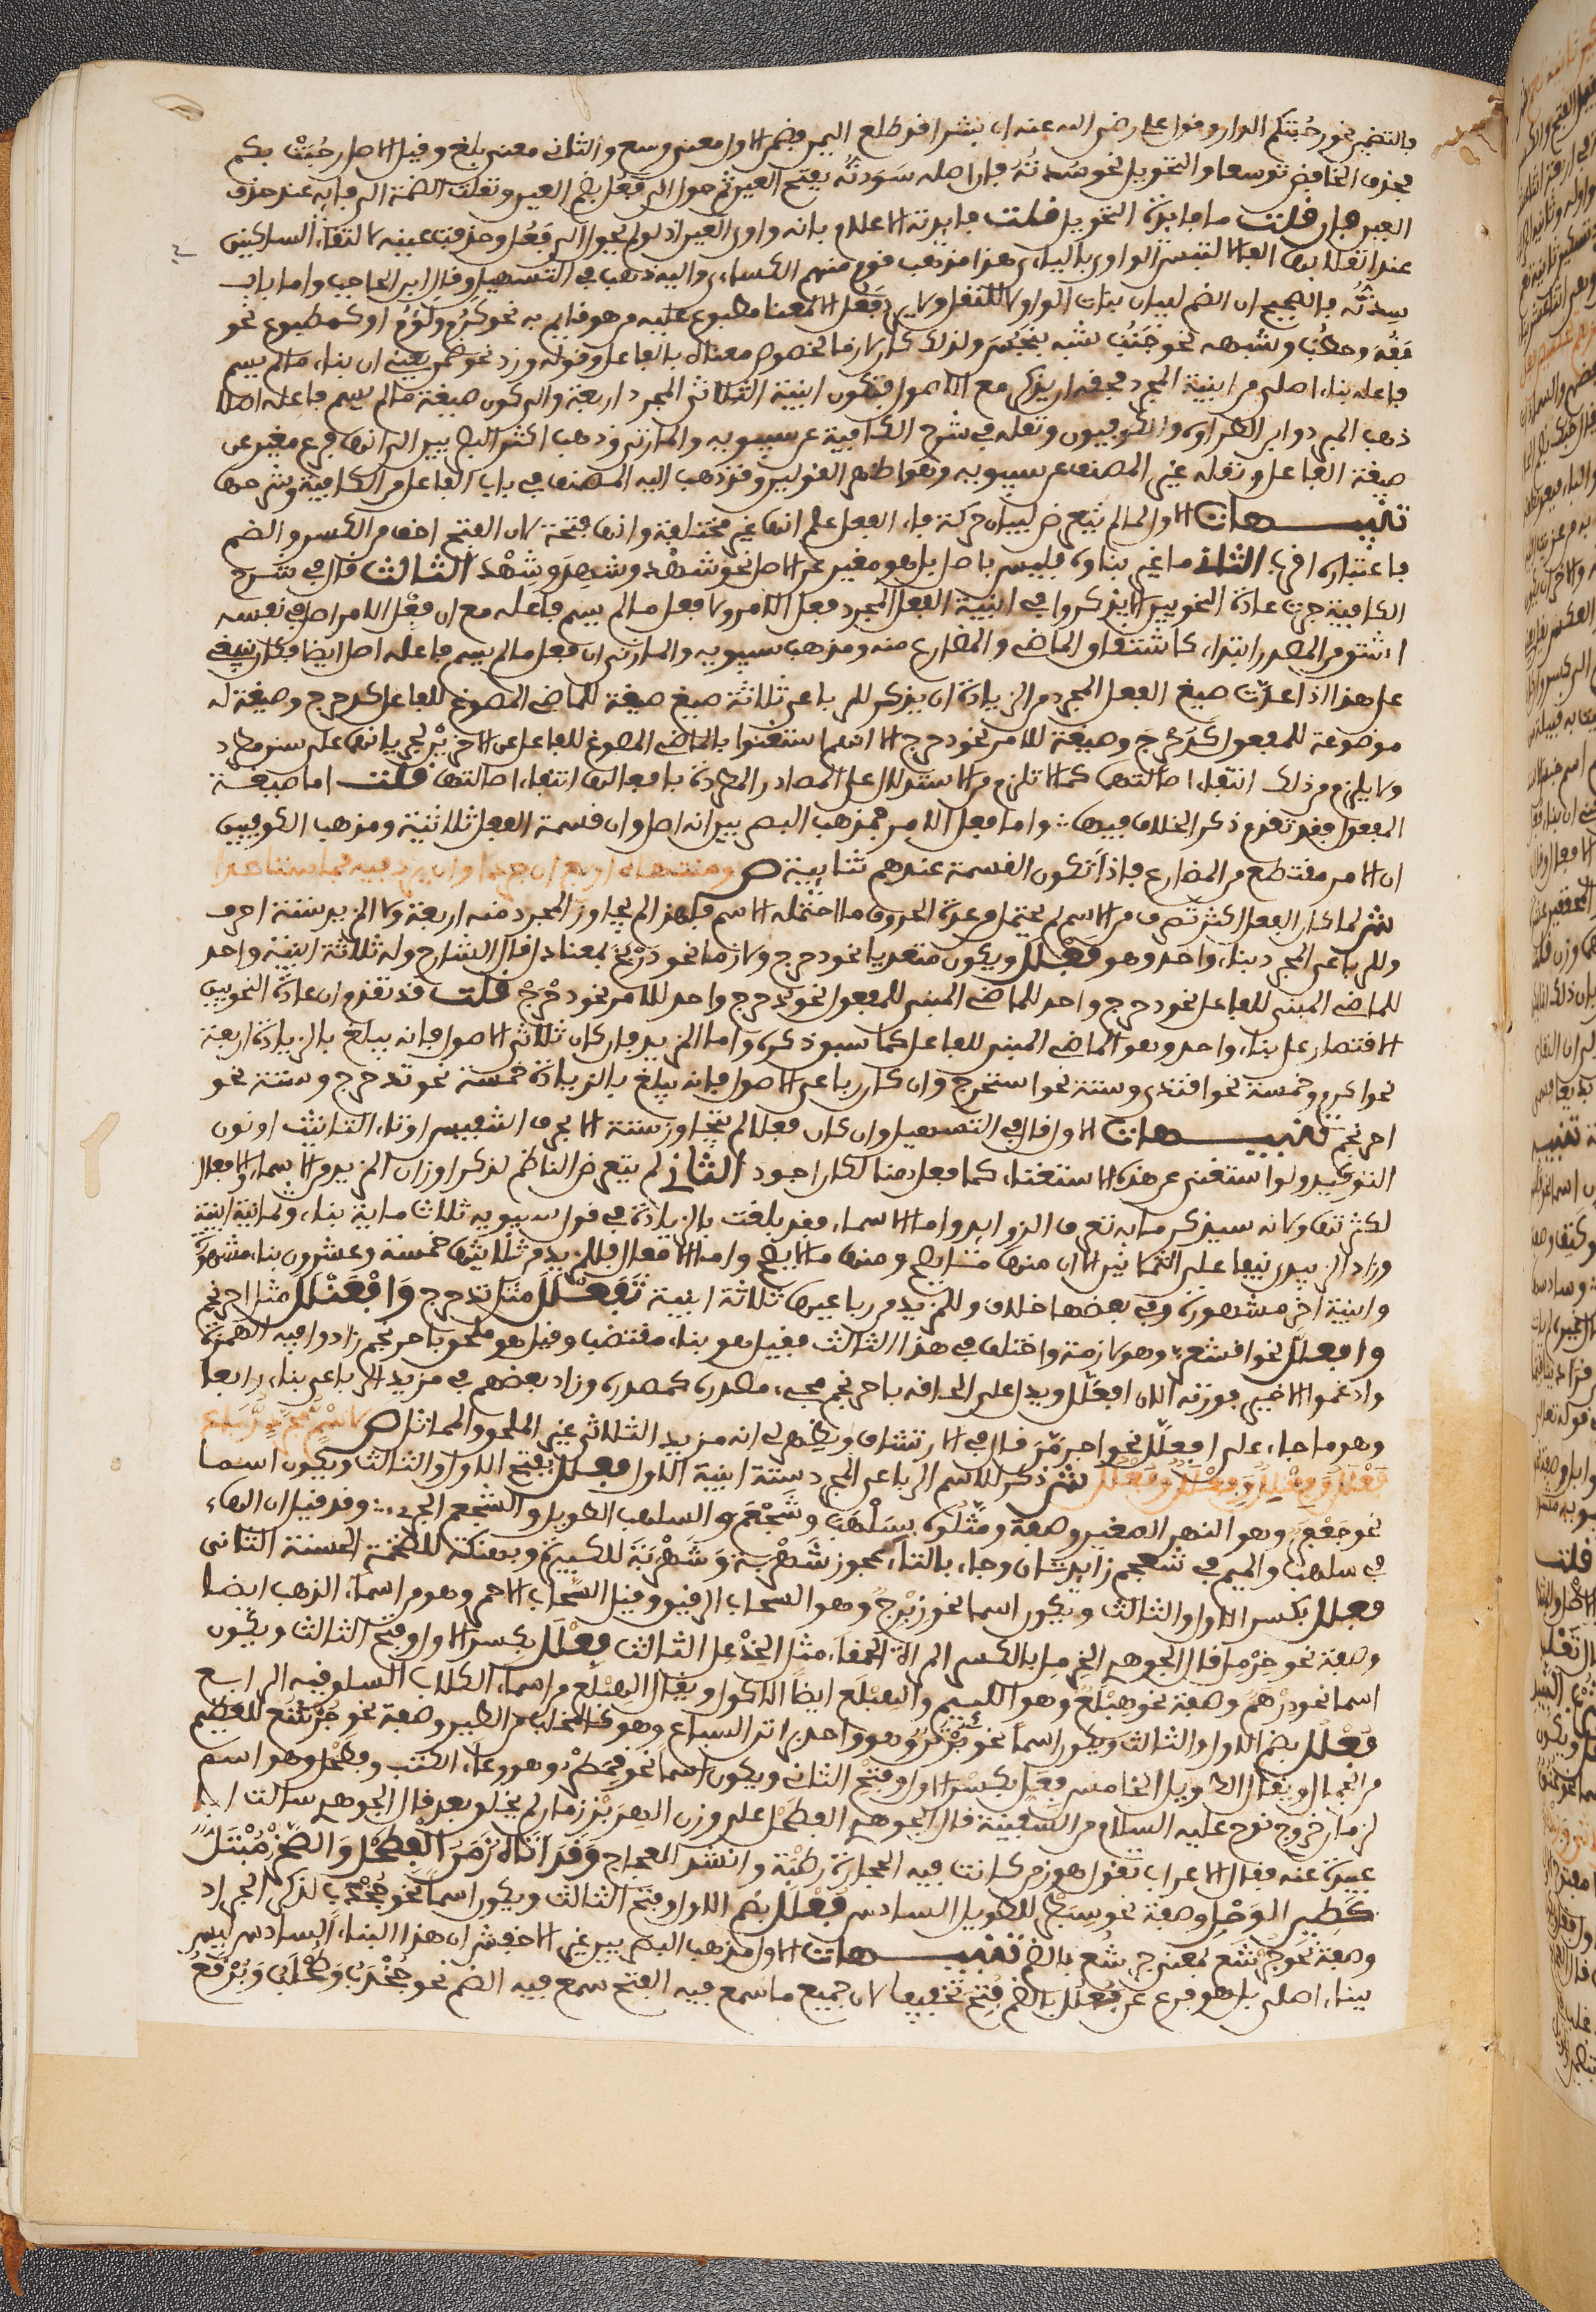 بالتضمين نحو رحبتكم الدار وقول علي رضي الله عنه ان بشرا قد طلع اليمن فضمن الاول معنى وسع والثاني معنى بلغ وقيل الاصل رحبت بكم
فحذف الخافض توسعا والتحويل نحو سدته فان اصله سَوَدته بفتح العين ثم حول الى فَعُل بضم العين ونقلت الضمة الى فائه عند حذف
العين فان قلت ما فايدة التحويل قلت فايدته الاعلام بانه واوي العين اذ لو لم يحول الى فَعُل وحذفت عينه لالتقاء الساكنين
عند انقلابها الفا لالتبس الواوي باليائي هذا مذهب قوم منهم الكسائي واليه ذهب في التسهيل وقال ابن الحاجب واما باب
سدته فالصحيح ان الضم لبيان بنات الواو لا للنقل ولا يرد فَعُل الا لمعنا مطبوع عليه من هو قايم به نحو كرم ولؤم او كمطبوع نحو
فقه وخطب وشبهه نحو جنب شبه بنجس ولذلك كان لازما لخصوص معناه بالفاعل وقوله وزد نحو ضمن يعني ان بناء ما لم يسم
فاعله بناء اصلي من ابنية المجرد فحقه ان يذكر مع الاصول فتكون ابنية الثلاثي المجرد اربعة والى كون صيغة ما لم يسم فاعله اصلا
ذهب المبرد وابن الطراوة والكوفيون ونقله في شرح الكافية عن سيبويه والمازني وذهب اكثر البصريين الى انها فرع مغير عن
صيغة الفاعل ونقله غير المصنف عن سيبويه وهو اظهر القولين وقد ذهب اليه المصنف في باب الفاعل من الكافية وشرحها
تنبيهات الاول لما لم يتعرض لبيان حركة فاء الفعل علم انها غير مختلفة وانها فتحة لان الفتح اخف من الكسر والضم
فاعتباره اقرب الثاني ما غير بناؤه فليس باصل بل هو مغير عن الاصل نحو شَهْدَ وشِهِدَ وشِهْدَ الثالث قال في شرح
الكافية جرت عادة النحويين الا يذكروا في ابنية الفعل المجرد فعل الامر ولا فعل ما لم يسم فاعله مع ان فعل الامر اصل في نفسه
اشتق من المصدر ابتداء كاشتقاق الماضي والمضارع منه ومذهب سيبويه والمازني ان فعل ما لم يسم فاعله اصل ايضا فكان ينبغي
على هذا اذا عدت صيغ الفعل المجرد من الزيادة ان يذكر للرباعي ثلاثة صيغ صيغة للماضي المصوغ للفاعل كدحرج وصيغة له
موضوعة للمفعول كدُحرِج وصيغة للامر نحو دحرج الا انهم استغنوا بالماضي المصوغ للفاعل عن الاخريين لجريانهما على سنن مطرد
ولا يلزم من ذلك انتفاء اصالتهما كما لا تلزم من الاستدلال على المصادر المطردة بافعالها انتفاء اصالتها قلت اما صيغة
المفعول فقد تقدم ذكر الخلاف فيها واما فعل الامر فمذهب البصريين انه اصل وان قسمة الفعل ثلاثية ومذهب الكوفيين
ان الامر مقتطع من المضارع فاذا تكون القسمة عندهم ثنايية ص ومنتهاه اربع ان جردا وان يزد فيه فما ستا عدا
ش لما كان الفعل اكثر تصرفا من الاسم لم يحتمل من عدة الحروف ما احتمله الاسم فلهذا لم يجاوز المجرد منه اربعة ولا المزيد ستة احرف
وللرباعي المجرد بناء واحد وهو فَعْلَلَ ويكون متعديا نحو دحرج ولازما نحو دربخ بمعنا ذل قال الشارح وله ثلاثة ابنية واحد
للماضي المبني للفاعل نحو دحرج وواحد للماضي المبني للمفعول نحو دُحرِج وواحد للامر نحو دحرج قلت قد تقدم ان عادة النحويين
الاقتصار على بناء واحد وهو الماضي المبني للفاعل كما سبق ذكره واما المزيد فان كان ثلاثي الاصول فانه يبلغ بالزيادة اربعة
نحو اكرم وخمسة نحو اقتدى وستة نحو استخرج وان كان رباعي الاصول فانه يبلغ بالزيادة خمسة نحو تدحرج وستة نحو
احرنجم تنبيهات الاول قال في التسهيل وان كان فعلا لم يتجاوز ستة الا بحرف التنفيس او تاء التانيث او نون
التوكيد ولو استغنى عن هذه الاستثناء كما فعل هنا لكان اجود الثاني لم يتعرض الناظم لذكر اوزان المزيد من الاسماء والافعال
لكثرتها ولانه سيذكر ما به تعرف الزوايد واما الاسماء فقد بلغت بالزيادة في قول سيبويه ثلاث ماية بناء وثمانية ابنية
وزاد الزبيدي نيفا على الثمانين الا ان منها ما يصح ومنها ما لا يصح واما الافعال فللمزيد من ثلاثيها خمسة وعشرون بناء مشهورة
وابنية اخر مشهورة وفي بعضها خلاف وللمزيد من رباعيها ثلاثة ابنية تَفَعْلَلَ مثل تدحرج وَافْعَنْلَلَ مثل احرنجم
وافعَلَلَّ نحو اقشعرّ وهو لازمة واختلف في هذا الثالث فقيل هو بناء مقتضب وقيل هو ملحق باحرنجم زادوا فيه الهمزة
وادغموا الاخير فوزنه الان افعلَلَّ ويدل على الحاقه باحرنجم مجيء مصدره كمصدره وزاد بعضهم في مزيد الرباعي بناء رابعا
وهو ما جاء على افعَلَّلَ نحو اجرمّز قال في الارتشاف ويظهر لي انه مزيد الثلاثي غير الملحق والمماثل ص لاسم مجرد رباع
فَعْلَلُ وَفِعْلِلٌ وَفِعْلَلٌ وَفُعْلُلُ ش ذكر للاسم الرباعي المجرد ستة ابنية الاول فَعْلَل بفتح الاول والثالث ويكون اسما
نحو جعفر وهو النهر الصغير وصفة ومثلوه بسَلْهَب وشَجْعَم والسلهب الطويل والشجعم الجريء وقد قيل ان الهاء
في سلهب والميم في شجعم زايدتان وجاء بالتاء عجوز شهربة وَشَهْبَرَة للكبيرة وبهكنة للضخمة الحسنة الثاني
فِعْلِل بكسر الاول والثالث ويكون اسما نحو زبرج وهو السحاب الرقيق وقيل السحاب الاحمر وهو من اسماء الذهب ايضا
وصفة نحو خِرْمِل قال الجوهري الخِرمِل بالكسر المراة الحمقاء مثل الخِذْعِل الثالث فِعْلَل بكسر الاول وفتح الثالث ويكون
اسما نحو درهم وصفة نحو هِبْلَع وهو اللئيم والهبلع ايضا الاكول ويقال الهبلع من اسماء الكلاب السلوقية الرابع
فُعْلُل بضم الاول والثالث ويكون اسما نحو بُرْثُن وهو واحد براثن السباع وهو كالمخلب من الطير وصفة نحو جُرْشُع للعظيم
من الجمال ويقال الطويل الخامس فِعَلّ بكسر الاول وفتح الثاني ويكون اسما نحو قِمَطْر وهو وعاء الكتب وفِطَحْل وهو اسم
لزمان خروج نوح عليه السلام من السفينة قال الجوهري الفطحل على وزن الهزبر زمان لم يخلق بعد قال الجوهري سالت ابا
عبيدة عنه فقال الاعراب تقول هو زمن كانت فيه الحجارة رطبة وانشد العجاج وَقَدْ اتَاهُ زَمَنُ الْفِطَحْل وَالصَّخْرُ مُبْتَلٌّ
كَطِينِ الوَحْلِ وصفة نحو سِبَطْر للطويل السادس فُعْلَل بضم الاول وفتح الثالث ويكون اسما نحو جُخْدَب لذكر الجراد
وصفة نحو جُرْشَع بمعنى جُرشُع بالضم تنبيهات الاول مذهب البصريين غير الاخفش ان هذا البناء السادس ليس
ببناء اصلي بل هو فرع عن فُعْلُل بالضم فتح تخفيفا لان جميع ما سمع فيه الفتح سمع فيه الضم نحو جُخْدَب وَطُحْلَب وَبُرْقَع